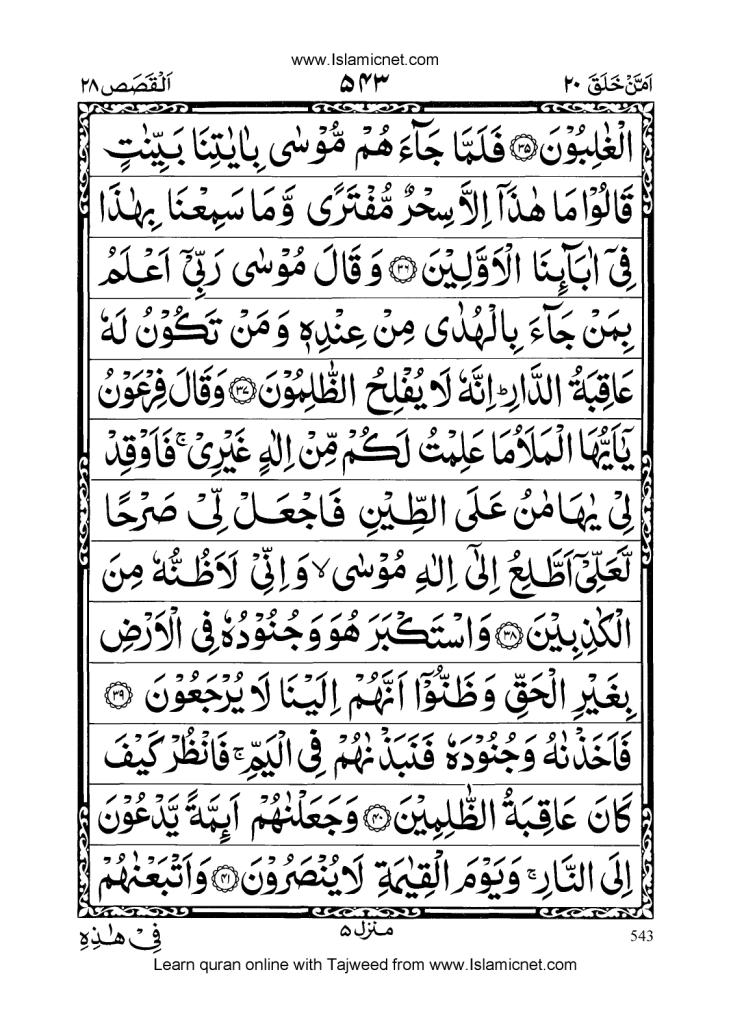 www.Islamicnet.com
اَمَّنْ خَلَقَ ٢٠ ۵۴۳ اَلْقَصَص ٢٨
الْغٰلِبُوْنَ ﴿۳۵﴾ فَلَمَّا جَآءَ هُمْ مُّوْسٰى بِاٰيٰتِنَا بَيِّنٰتٍ
قَالُوْا مَا هٰذَآ اِلَّا سِحْرٌ مُّفْتَرًى وَّمَا سَمِعْنَا بِهٰذَا
فِىْٓ اٰبَآئِنَا الْاَوَّلِيْنَ ﴿۳۶﴾ وَقَالَ مُوْسٰى رَبِّىْٓ اَعْلَمُ
بِمَنْ جَآءَ بِالْهُدٰى مِنْ عِنْدِهٖ وَمَنْ تَكُوْنُ لَهٗ
عَاقِبَةُ الدَّارِ ؕ اِنَّهٗ لَا يُفْلِحُ الظّٰلِمُوْنَ ﴿۳۷﴾ وَقَالَ فِرْعَوْنُ
يٰٓاَيُّهَا الْمَلَاُ مَا عَلِمْتُ لَكُمْ مِّنْ اِلٰهٍ غَيْرِىْ ۚ فَاَوْقِدْ
لِىْ يٰهَامٰنُ عَلَى الطِّيْنِ فَاجْعَلْ لِّىْ صَرْحًا
لَّعَلِّىْٓ اَطَّلِعُ اِلٰٓى اِلٰهِ مُوْسٰى ۙ وَاِنِّىْ لَاَظُنُّهٗ مِنَ
الْكٰذِبِيْنَ ﴿۳۸﴾ وَاسْتَكْبَرَ هُوَ وَجُنُوْدُهٗ فِى الْاَرْضِ
بِغَيْرِ الْحَقِّ وَظَنُّوْٓا اَنَّهُمْ اِلَيْنَا لَا يُرْجَعُوْنَ ﴿۳۹﴾
فَاَخَذْنٰهُ وَجُنُوْدَهٗ فَنَبَذْنٰهُمْ فِى الْيَمِّ ۚ فَانْظُرْ كَيْفَ
كَانَ عَاقِبَةُ الظّٰلِمِيْنَ ﴿۴۰﴾ وَجَعَلْنٰهُمْ اَئِمَّةً يَّدْعُوْنَ
اِلَى النَّارِ ۚ وَيَوْمَ الْقِيٰمَةِ لَا يُنْصَرُوْنَ ﴿۴۱﴾ وَاَتْبَعْنٰهُمْ
543 منزل ۵ فِىْ هٰذِهِ
Learn quran online with Tajweed from www.Islamicnet.com